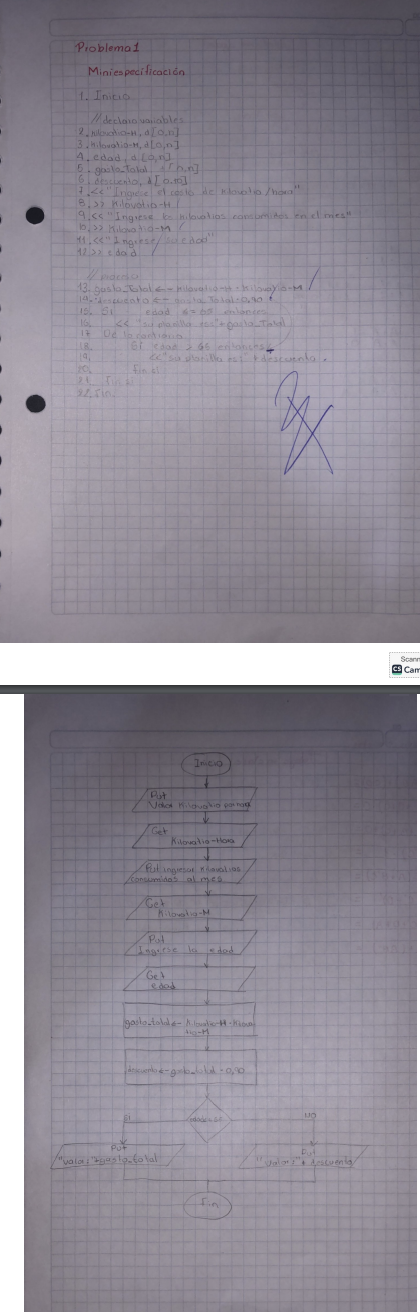 Problema 1
Miniespecificación
1. Inicio
// declaro variables
2. Kilovatio-H, d[0,n]
3. Kilovatio-M, d[0,n]
4. edad, d[0,n]
5. gasto_Total, d[0,n]
6. descuento, d[0,n]
7. << "Ingrese el costo de Kilovatio/hora"
8. >> Kilovatio-H
9. << "Ingrese los Kilovatios consumidos en el mes"
10. >> Kilovatio-M
11. << "Ingrese su edad"
12. >> edad
// proceso
13. gasto_Total ← Kilovatio-H * Kilovatio-M
14. descuento ← gasto_Total * 0,90
15. Si edad entonces
16. << "su planilla es:" + gasto_Total
17. De lo contrario
18. Si edad > 65 entonces
19. << "su planilla es:" + descuento
20. fin si
21. fin si
22. fin
Scann
CS Cam
Inicio
Put
Valor Kilovatio por hora
Get
Kilovatio-Hora
Put ingresar Kilovatios
consumidos al mes
Get
Kilovatio-M
Put
Ingrese la edad
Get
edad
gasto_total ← Kilovatio-H * Kilova-
tio-M
descuento ← gasto_total * 0,90
SI
NO
Put
"valor:" + gasto_total
Put
"valor:" + descuento
Fin